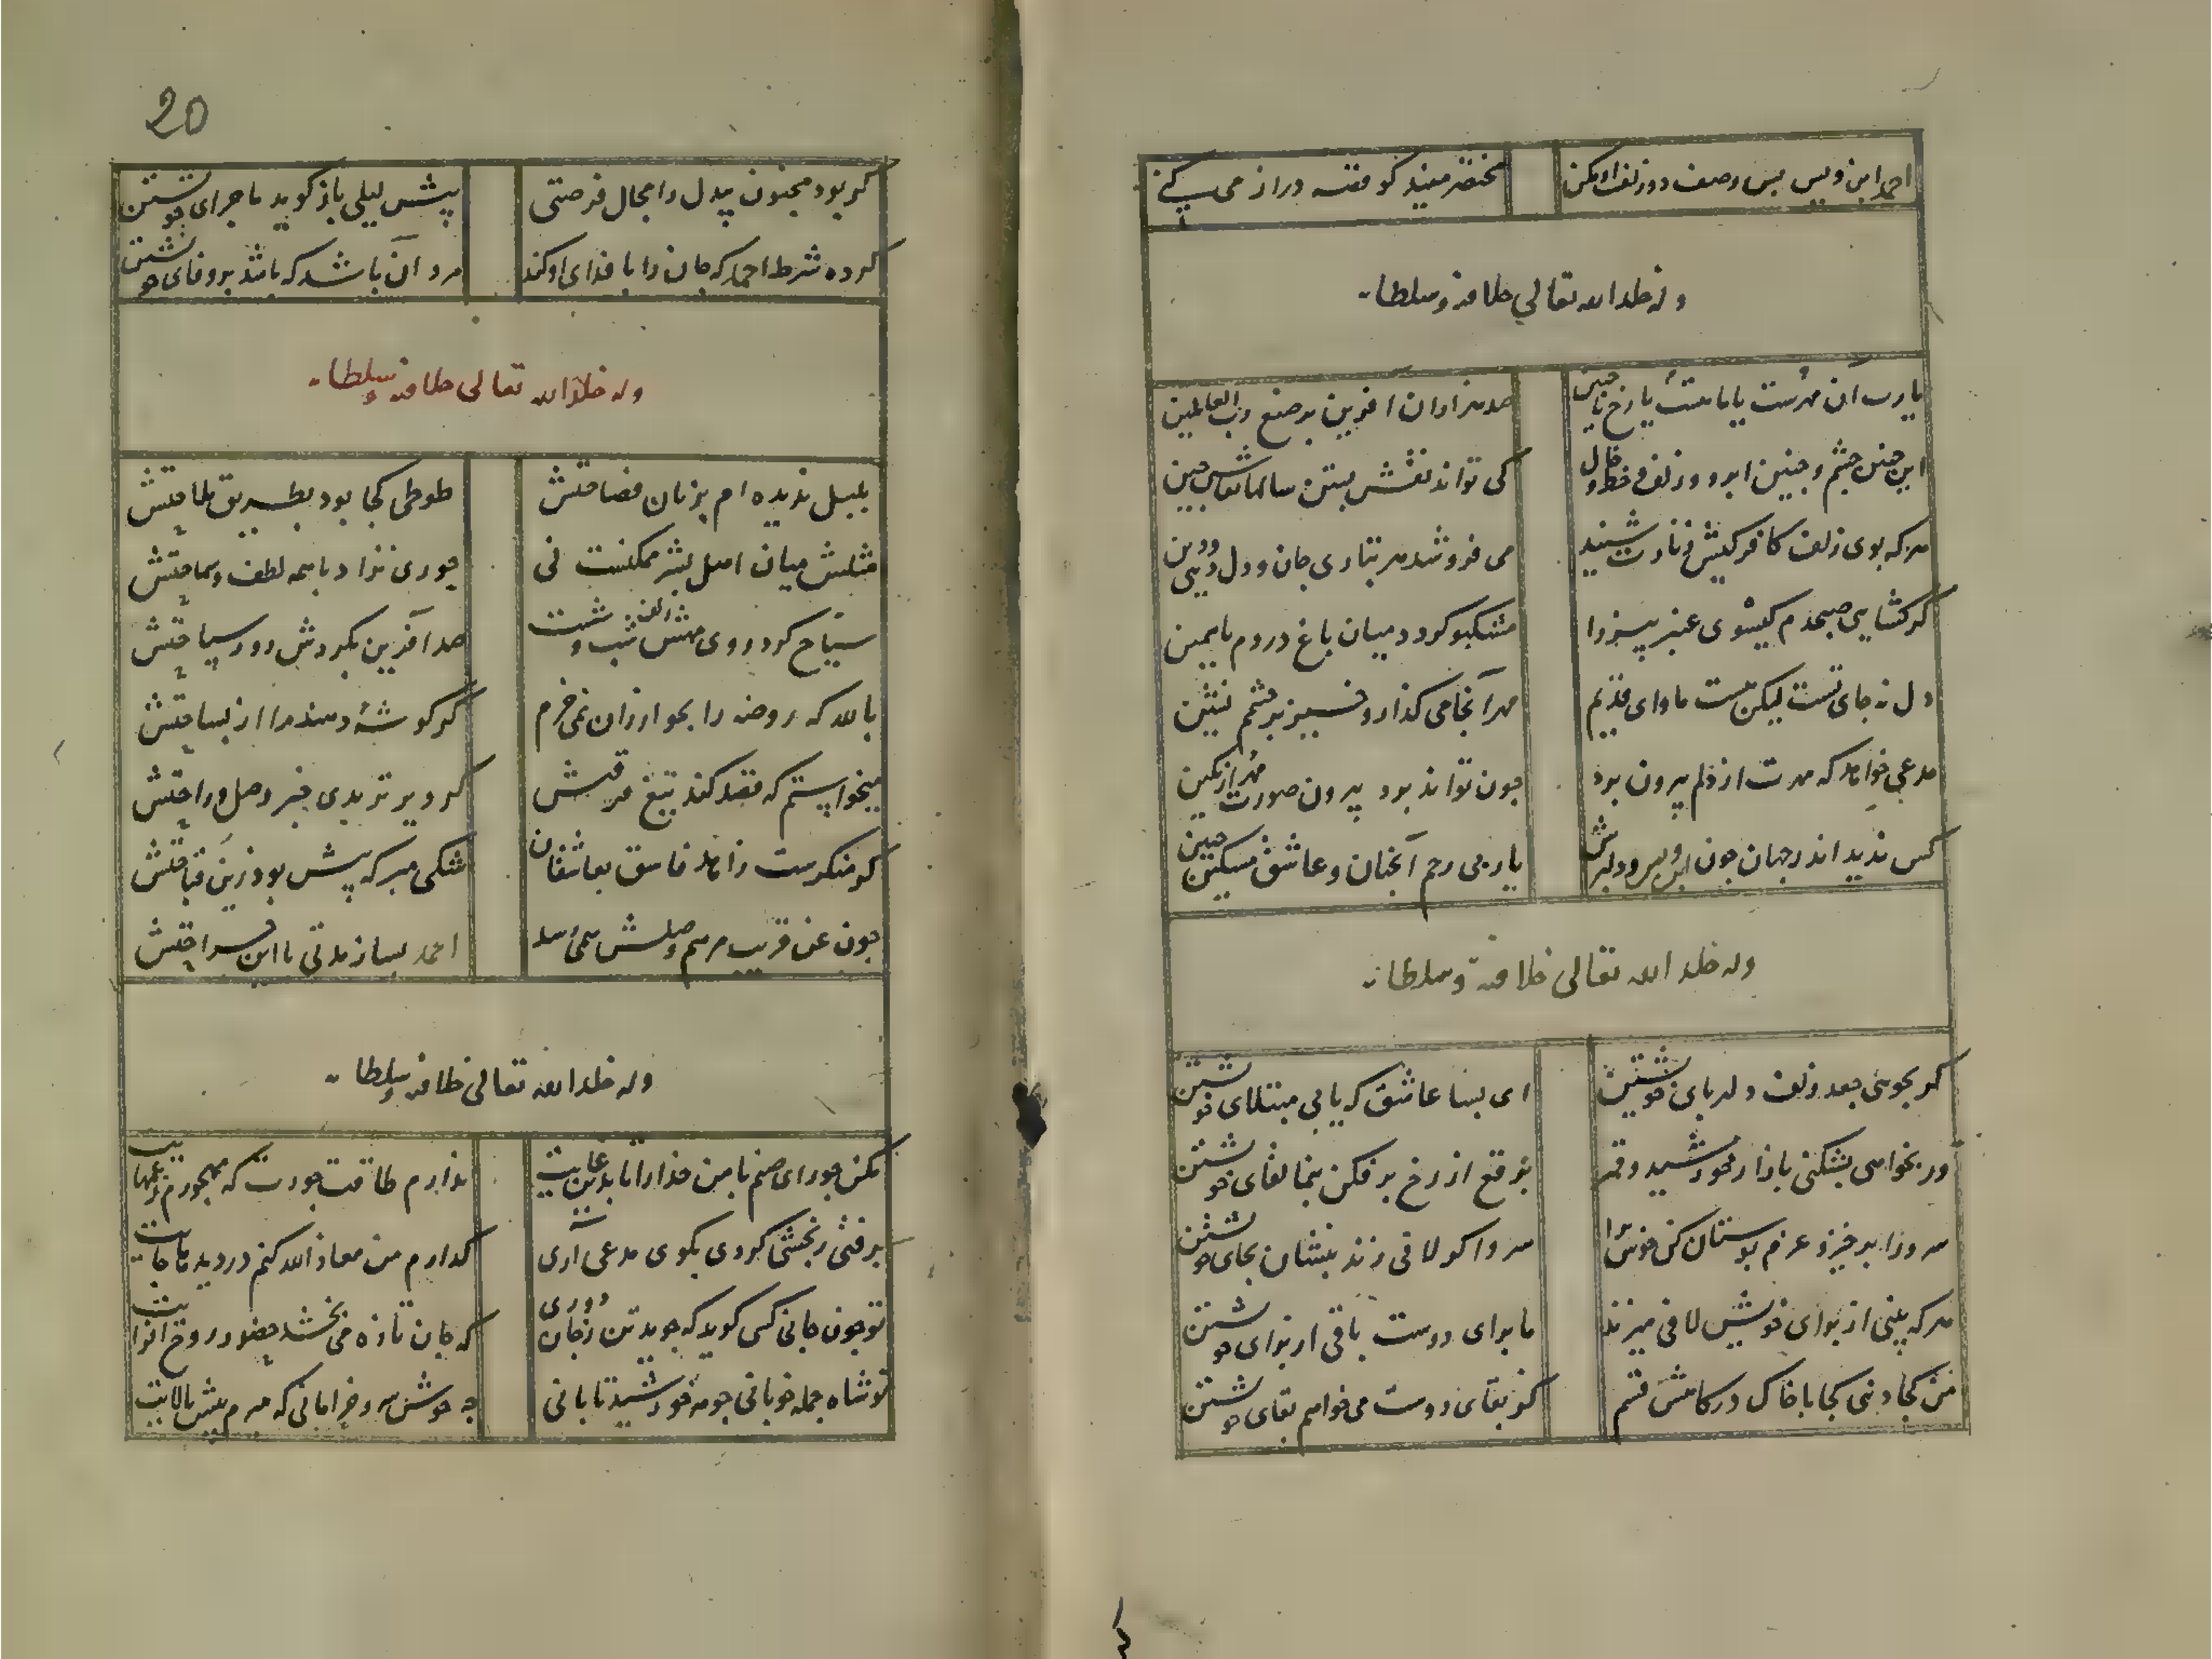 احمد ابن ویس بس وصف دو زلف او مکن
مختصر میند کو قصه دراز می کنی
وله خلد الله تعالی خلافته وسلطانه
یارب آن مهرست یا ماهست یا رخ یا جبین
صد هزاران آفرین بر صنع رب العالمین
این چنین چشم و چنین ابرو و زلف و خط و خال
کی تواند نقش بستن سالها نقاش چین
هر که بوی زلف کافر کیش شنید
می فروشد هر بتاری جان و دل و دین
گر گشایی صبحدم گیسوی عنبر بیز را
مشکبو گردد میان باغ در دم یاسمین
دل نه جای تست لیکن هست ماوای قدیم
مهر آنجا می گذار و خیز بر چشم نشین
مدعی خواهد که مهرت از دلم بیرون بود
چون تواند بود بیرون صورت مهر از نگین
کس ندید اندر جهان چون ابن ویس و دلبرش
یار بی رحم آنچنان و عاشق مسکین چنین
وله خلد الله تعالی خلافته وسلطانه
گر بجویی جعد زلف دلربای خویشتن
ای بسا عاشق که یابی مبتلای خویشتن
ور بخواهی بشکنی بازار خورشید و قمر
برقع از رخ برفکن بنما لقای خویشتن
سرو را کو لافی زند بنشان بجای خویشتن
هر که بینی از برای خویشتن لافی میزند
ما برای دوست باقی از برای خویشتن
من کجا دنی کجا با خاک درگاهش قسم
کز بقای دوست می خواهم بقای خویشتن
20
گر بود مجنون بیدل را مجال فرصتی
پیش لیلی باز گوید ماجرای خویشتن
کرده شرط احمد که جان را با فدای او کند
مرد آن باشد که باشد بر وفای خویشتن
وله خلد الله تعالی خلافته وسلطانه
بلبل ندیده ام بزبان فصاحتش
طوطی کجا بود بطریق ملاحتش
مثلش میان اهل بشر ممکنست نی
حوری نژاد با همه لطف و سماحتش
سیاح گرد روی مهش زلف شب و شست
صد آفرین بگردش دور سیاحتش
بالله که روضه را بجو ارزان نمی خرم
گر گوشهٔ دهند مرا از بساحتش
میخواستم که قصد کند تیغ فرقتش
گر دیر تر بدی خبر وصل و راحتش
گو منکرست زاهد فاسق بعاشقان
شنکی مبر که بیش بود زین قباحتش
چون عن قریب مرهم وصلش همی رسد
احمد بساز مدتی با این جراحتش
وله خلد الله تعالی خلافته وسلطانه
مکن جور ای صنم با من خدارا
ندارم طاقت جورت که مهجورم
برفتی رنجشی کردی بگوی مدعی آری
که دارم من معاذ الله کنم در دیده ماوایت
تو چون جانی کس گوید که جوید تن ز جان دوری
که جان تازه می بخشد حضور روح افزایت
تو شاه جمله خوبانی چو مه خورشید تابانی
چه خوش سرو خرامانی که میرم پیش بالایت